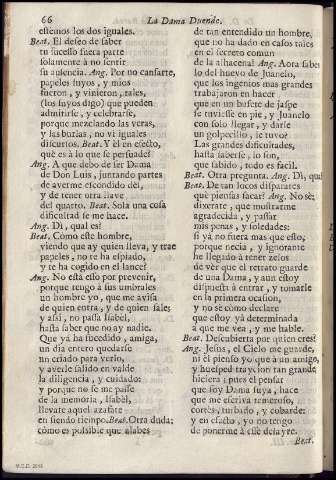 66
La Dama Duende.
estemos los dos iguales.
Beat. El deseo de saber
tu sucesso fuera parte
solamente à no sentir
su ausencia. Ang. Por no cansarte,
papeles suyos, y mios
fueron, y vinieron, tales,
(los suyos digo) que pueden
admitirse, y celebrarse,
porque mezclando las veras,
y las burlas, no vì iguales
discursos. Beat. Y èl en efecto,
què es à lo que se persuade?
Ang. A que debo de ser Dama
de Don Luis, juntando partes
de averme escondido dèl,
y de tener otra llave
del quarto. Beat. Sola una cosa
dificultad se me hace.
Ang. Di, qual es?
Beat. Como este hombre,
viendo que ay quien lleva, y trae
papeles, no te ha espiado,
y te ha cogido en el lance?
Ang. No està esso por prevenir,
porque tengo à sus umbrales
un hombre yo, que me avisa
de quien entra, y de quien sale,
y assi, no passa Isabèl,
hasta saber que no ay nadie.
Que yà ha sucedido, amiga,
un dia entero quedarse
un criado para verlo,
y averle salido en valde
la diligencia, y cuidado:
y porque no se me passe
de la memoria, Isabèl,
llevate aquel azafate
en siendo tiempo. Beat. Otra duda;
còmo es possible que alabes
de tan entendido un hombre,
que no ha dado en casos tales
en el secreto comun
de la alhacena? Ang. Aora sabes
lo del huevo de Juanelo,
que los ingenios mas grandes
trabajaron en hacer
que en un bufete de jaspe
se tuviesse en pie, y Juanelo
con solo llegar, y darle
un golpecillo, le tuvo?
Las grandes dificultades,
hasta saberse, lo son,
que sabido, todo es facil.
Beat. Otra pregunta. Ang. Dì, qual
Beat. De tan locos disparates
què piensas sacar? Ang. No sè:
dixerate, que mostrarme
agradecida, y passar
mis penas, y soledades:
si yà no fuera mas que esto,
porque necia, y ignorante
he llegado à tener zelos
de vèr que el retrato guarde
de una Dama, y aun estoy
dispuesta à entrar, y tomarle
en la primera ocasion,
y no sè còmo declare
que estoy yà determinada
à que me vea, y me hable.
Beat. Descubierta por quien eres?
Ang. Jesus, el Cielo me guarde,
ni èl pienso yo que à un amigo,
y huesped traycion tan grande
hiciera; pues el pensar
que soy Dama suya, hace
que me escriva temeroso,
cortès, turbado, y cobarde:
y en efecto, yo no tengo
de ponerme à esse desayre.
Beat.